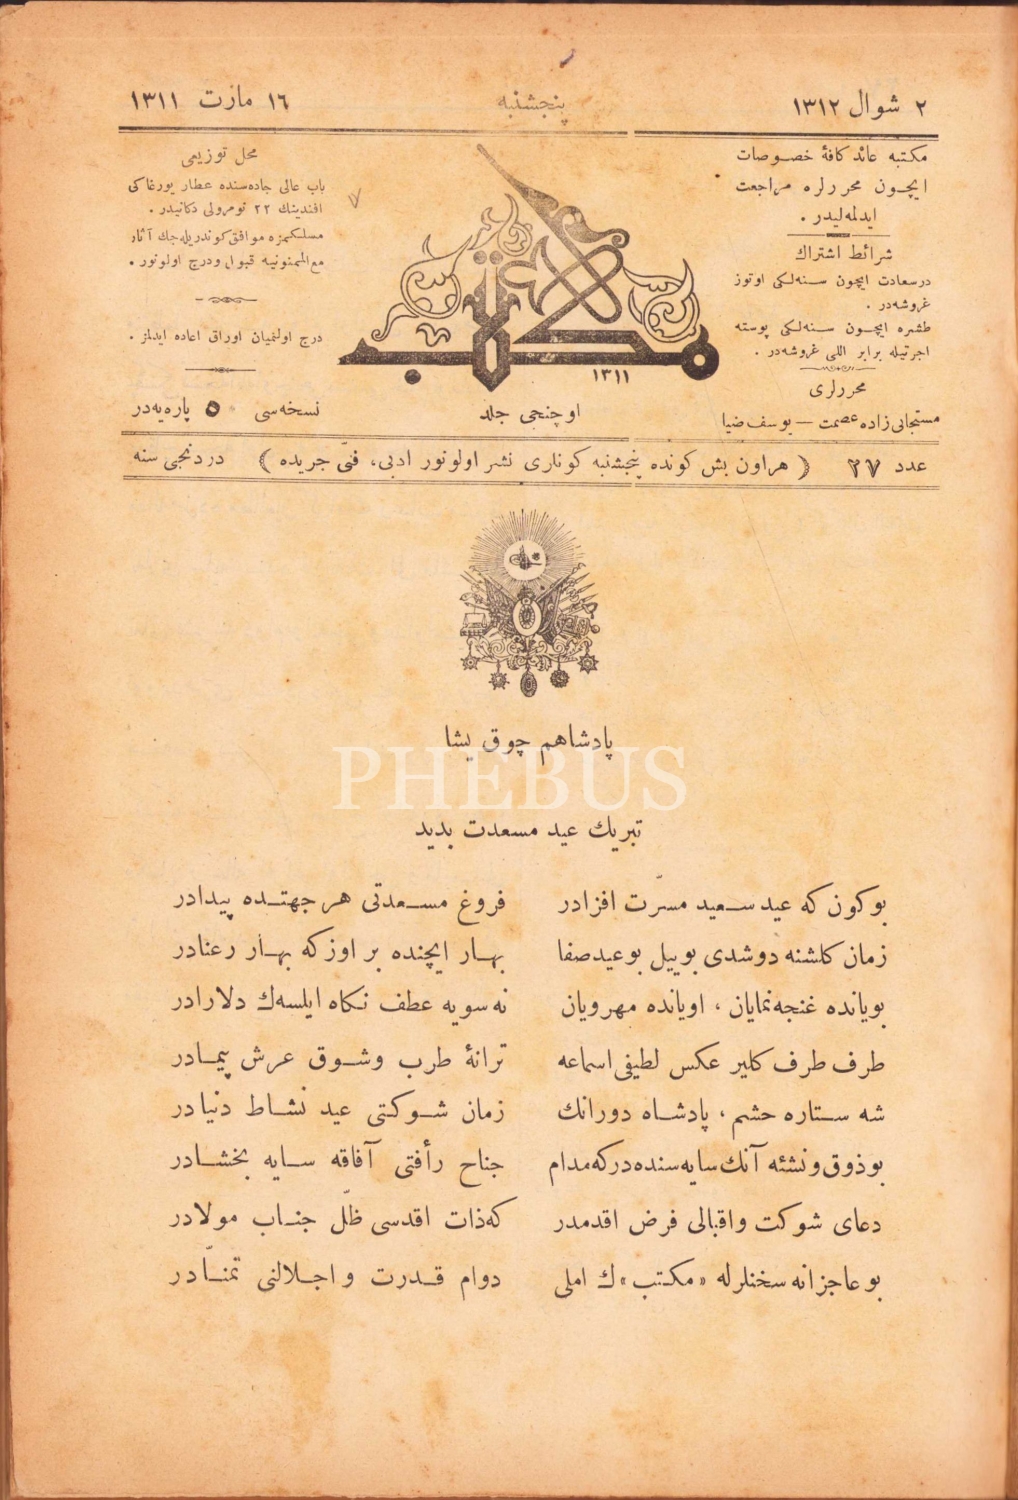 ٢ شوال ١٣١٢
پنجشنبه
١٦ مارت ١٣١١
مكتبه عائد كافۀ خصوصات
ايچون محررلره مراجعت
ايدلمه‌ليدر .
شرائط اشتراك
درسعادت ايچون سنه‌لكى اوتوز
غروشه‌در .
طشره ايچون سنه‌لكى پوسته
اجرتيله برابر اللى غروشه‌در .
محررلرى
مستجابى زاده عصمت — يوسف ضيا
مكتب
١٣١١
اوچنجى جلد
محل توزيعى
باب عالى جاده‌سنده عطار يورغاكى
افندينك ٢٢ نومرولى دكانيدر .
مسلكمزه موافق كوندريله‌جك آثار
مع الممنونيه قبول ودرج اولونور .
درج اولنميان اوراق اعاده ايدلمز .
نسخه‌سى ٥٠ پاره‌يه‌در
عدد ٢٧ ( هر اون بش كونده پنجشنبه كونلرى نشر اولونور ادبى، فنّى جريده ) دردنجى سنه
پادشاهم چوق يشا
PHEBUS
تبريك عيد مسعدت بديد
بوكون كه عيد سعيد مسرّت افزادر فروغ مسعدتى هر جهتده پيدادر
زمان كلشنه دوشدى بوييل بوعيدصفا بهار ايچنده بر اوزكه بهار رعنادر
بويانده غنجه‌نمايان ، اويانده مهرويان نه سويه عطف نكاه ايلسه‌ك دلارادر
طرف طرف كلير عكس لطيفى اسماعه ترانۀ طرب وشوق عرش پيمادر
شه ستاره حشم ، پادشاه دورانك زمان شوكتى عيد نشاط دنيادر
بوذوق ونشئه آنك سايه‌سنده‌دركه مدام جناح رأفتى آفاقه سايه بخشادر
دعاى شوكت واقبالى فرض اقدمدر كه ذات اقدسى ظلّ جناب مولادر
بو عاجزانه سخنلرله «مكتب»ك املى دوام قدرت واجلالنى تمنّادر